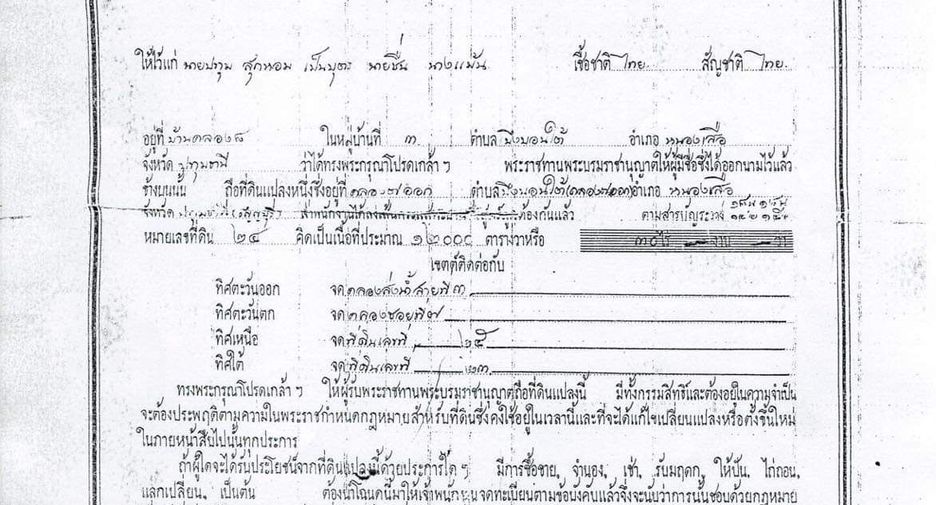 ให้ไว้แก่ นายปทุม สุกหอม เป็นบุตร นายชื่น นางแม้น เชื้อชาติ ไทย. สัญชาติ ไทย.
อยู่ที่ บ้านคลอง๘ ในหมู่บ้านที่ ๓ ตำบล บึงบอนใต้ อำเภอ หนองเสือ
จังหวัด ปทุมธานี ว่าได้ทรงพระกรุณาโปรดเกล้า ฯ พระราชทานพระบรมราชานุญาตให้ผู้มีชื่อซึ่งได้ออกนามไว้แล้ว
ข้างบนนั้น ถือที่ดินแปลงหนึ่งซึ่งอยู่ที่ คลอง๗ออก ตำบล บึงบอนใต้ อำเภอ หนองเสือ
จังหวัด ต้องกันแล้ว ตามสารบัญระวาง
หมายเลขที่ดิน ๒๔ คิดเป็นเนื้อที่ประมาณ ๑๒๐๐๐ ตารางวาหรือ ๓๐ ไร่ — งาน — วา
เขตต์ติดต่อกับ
ทิศตะวันออก จด คลองส่งน้ำสายที่ ๓
ทิศตะวันตก จด คลองซอยที่ ๗
ทิศเหนือ จด ที่ดินเลขที่ ๒๕
ทิศใต้ จด ที่ดินเลขที่ ๒๓
ทรงพระกรุณาโปรดเกล้า ฯ ให้ผู้รับพระราชทานพระบรมราชานุญาตถือที่ดินแปลงนี้ มีทั้งกรรมสิทธิ์และต้องอยู่ในความจำเป็น
จะต้องประพฤติตามความในพระราชกำหนดกฎหมายสำหรับที่ดินซึ่งคงใช้อยู่ในเวลานี้และที่จะได้แก้ไขเปลี่ยนแปลงหรือตั้งขึ้นใหม่
ในภายหน้าสืบไปนั้นทุกประการ
ถ้าผู้ใดจะได้รับประโยชน์จากที่ดินแปลงนี้ด้วยประการใด ๆ มีการซื้อขาย, จำนอง, เช่า, รับมฤดก, ให้ปัน, ไถ่ถอน,
แลกเปลี่ยน, เป็นต้น ต้องนำโฉนดนี้มาให้เจ้าพนักงานจดทะเบียนตามข้อบังคับแล้วจึงจะนับว่าการนั้นชอบด้วยกฎหมาย